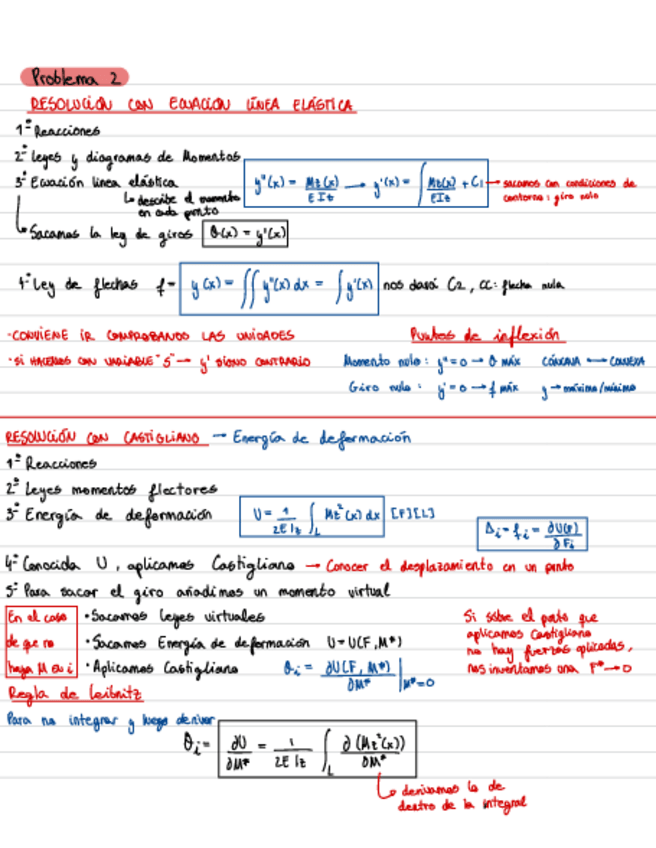 Problema 2
RESOLUCIÓN CON ECUACIÓN LÍNEA ELÁSTICA
1º Reacciones
2º Leyes y diagramas de Momentos
3º Ecuación línea elástica
↳ describe el momento en cada punto
y''(x) = Mz(x)/EIz → y'(x) = ∫ Mz(x)/EIz + C1 → sacamos con condiciones de contorno: giro nulo
↳ Sacamos la ley de giros θ(x) = y'(x)
4º Ley de flechas f = y(x) = ∫∫ y''(x) dx = ∫ y'(x) nos dará C2, CC: flecha nula
· CONVIENE IR COMPROBANDO LAS UNIDADES
· SI HACEMOS CON VARIABLE "S" → y' SIGNO CONTRARIO
Puntos de inflexión
Momento nulo: y'' = 0 → θ MÁX CÓNCAVA ↔ CONVEXA
Giro nulo: y' = 0 → f máx y → máximo/mínimo
RESOLUCIÓN CON CASTIGLIANO → Energía de deformación
1º Reacciones
2º Leyes momentos flectores
3º Energía de deformación U = 1/2EIz ∫L Mz²(x) dx [F][L]
Δi = fi = ∂U(F)/∂Fi
4º Conocida U, aplicamos Castigliano → Conocer el desplazamiento en un punto
5º Para sacar el giro añadimos un momento virtual
En el caso de que no haya M en i
· Sacamos leyes virtuales
· Sacamos Energía de deformación U = U(F, M*)
· Aplicamos Castigliano θi = ∂U(F, M*)/∂M* |M*=0
Si sobre el punto que
aplicamos Castigliano
no hay fuerzas aplicadas,
nos inventamos una F* → 0
Regla de Leibnitz
Para no integrar y luego derivar
θi = ∂U/∂M* = 1/2EIz ∫L ∂(Mz²(x))/∂M*
↳ derivamos lo de
dentro de la integral